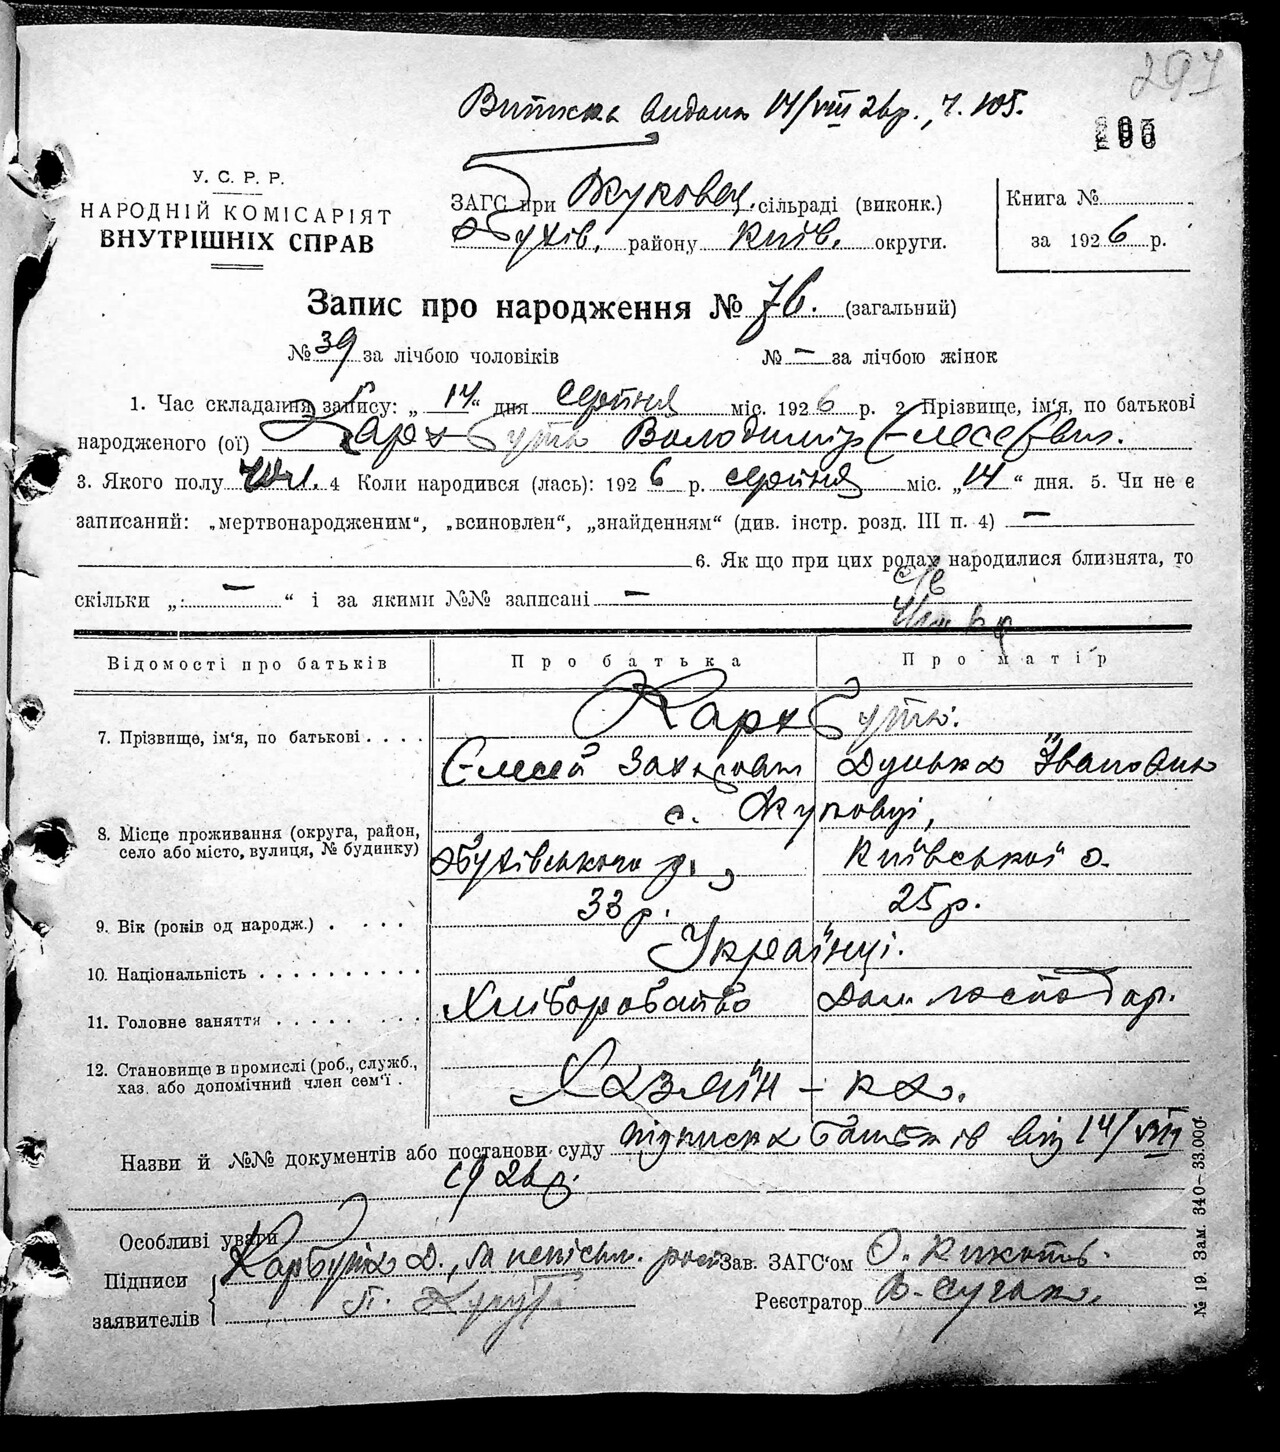 297
Виписка видана 14/VIII 26р., ч. 105.
У. С. Р. Р.
НАРОДНІЙ КОМІСАРІЯТ
ВНУТРІШНІХ СПРАВ
ЗАГС при Жуковец. сільраді (виконк.)
Обухів. району Київ. округи.
Книга №
за 1926 р.
Запис про народження № 76. (загальний)
№ 39 за лічбою чоловіків № — за лічбою жінок
1. Час складання запису: „ 14 “ дня серпня міс. 1926 р. 2. Прізвище, ім'я, по батькові
народженого (ої) Володимир Єлесеєвич.
3. Якого полу чол. 4 Коли народився (лась): 1926 р. серпня міс. „14“ дня. 5. Чи не є
записаний: „мертвонародженим“, „всиновлен“, „знайденням“ (див. інстр. розд. III п. 4) —
6. Як що при цих родах народилися близнята, то
скільки „: — “ і за якими №№ записані —
Відомості про батьків Про батька Про матір
7. Прізвище, ім'я, по батькові . . . .
Єлесей Захарович Дунька Івановна
с. Жуковці,
8. Місце проживання (округа, район,
село або місто, вулиця, № будинку)
Обухівського р., Київської о.
9. Вік (років од народж.) . . . . 33 р. 25 р.
10. Національність . . . . . . . . . . Українці.
11. Головне заняття . . . . . . . . Хліборобство Дом. господар.
12. Становище в промислі (роб., служб.,
хаз. або допомічний член сем'ї .
Хазяїн – ка.
Назви й №№ документів або постанови суду підписка батьків від 14/VIII
1926р.
Особливі уваги
Підписи
заявителів
Карбута Д., за неписьм. розп.
Зав. ЗАГС'ом
Реєстратор
№ 19. Зам. 340—33.000.